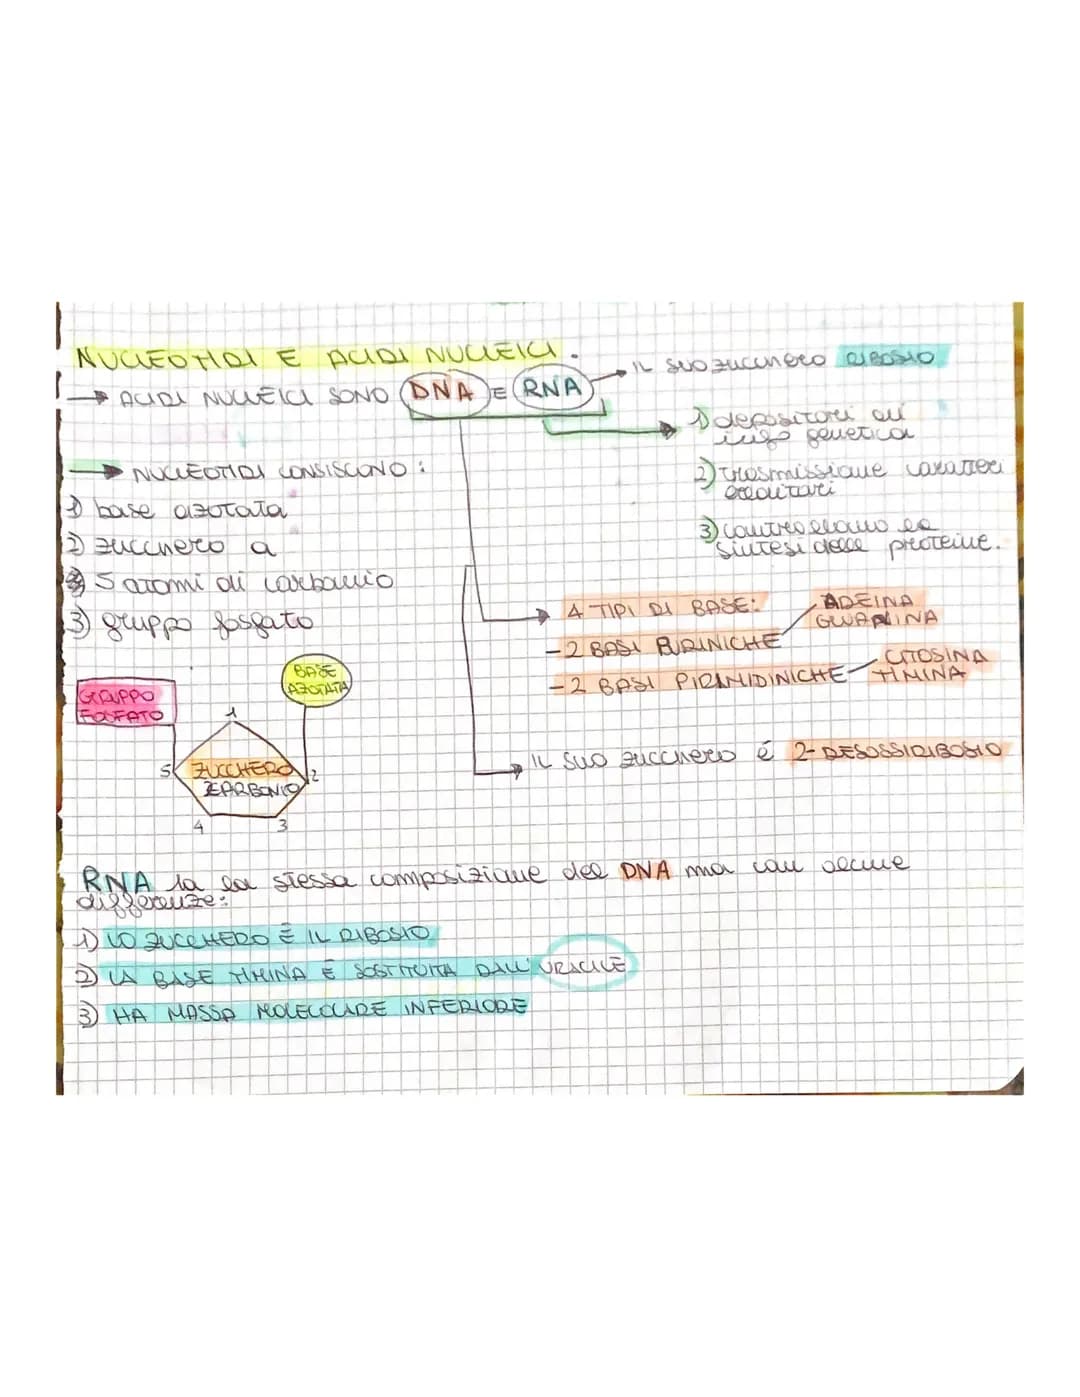 NUCLEOTIDI E ACIDI NUCLEICI.
→ ACIDI NUCLEICI SONO DNA E RNA
IL SUO zucchero RIBOSIO
1) depositari di
info genetica
2) trasmissione caratteri
ereditari
3) controllano la
sintesi delle proteine.
→ NUCLEOTIDI CONSISCONO:
1) base azotata
2) zucchero a
5 atomi di carbonio
3) gruppo fosfato
4 TIPI DI BASE:
- 2 BASI PURINICHE
ADEINA
GUANINA
- 2 BASI PIRIMIDINICHE
CITOSINA
TIMINA
GRUPPO
FOSFATO
BASE
AZOTATA
1
5 ZUCCHERO 2
CARBONIO
4 3
IL SUO zucchero é 2-DESOSSIRIBOSIO
RNA ha la stessa composizione del DNA ma con alcune
differenze:
1) LO ZUCCHERO É IL RIBOSIO
2) LA BASE TIMINA É SOSTITUITA DALL'URACILE
3) HA MASSA MOLECOLARE INFERIORE